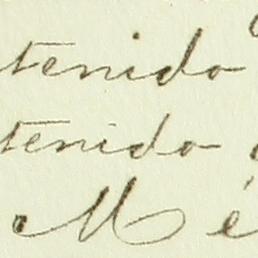 tenido
tenido
Mé